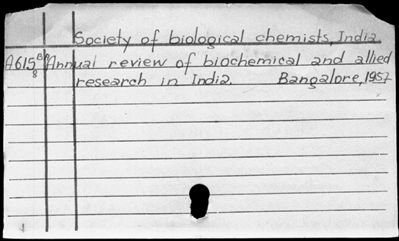 Society of biological chemists, India.
A615 B Annual review of biochemical and allied
8 research in India. Bangalore, 1957
1